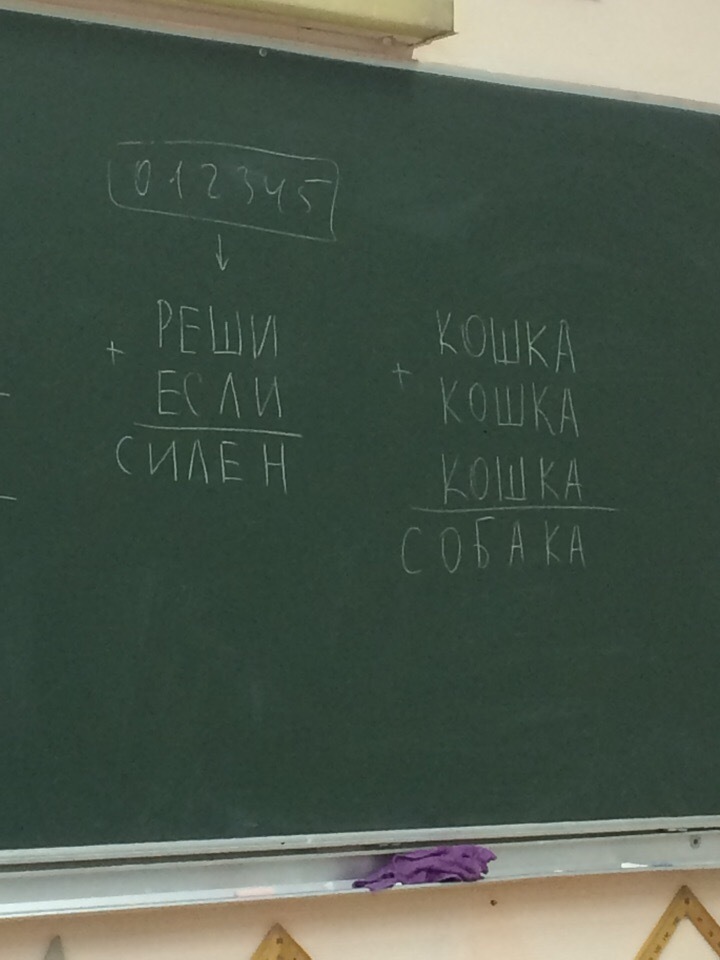 0 1 2 3 4 5
РЕШИ
+
ЕСЛИ
СИЛЕН
КОШКА
+
КОШКА
КОШКА
СОБАКА